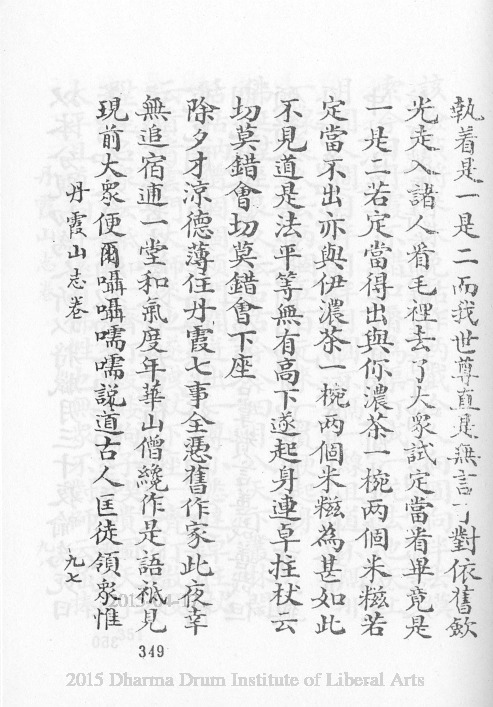 執着是一是二而我世尊直是無言可對依舊斂
光走入諸人眉毛裡去了大衆試定當看畢竟是
一是二若定當得出與你濃茶一椀两個米糍若
定當不出亦與伊濃茶一椀两個米糍為甚如此
不見道是法平等無有高下遂起身連卓拄杖云
切莫錯會切莫錯會下座
除夕才涼德薄住丹霞七事全憑舊作家此夜莘
無追宿逋一堂和氣度年華山僧纔作是語祇見
現前大衆便爾囁囁嚅嚅説道古人匡徒領衆惟
丹霞山志卷
九七
349
2015 Dharma Drum Institute of Liberal Arts